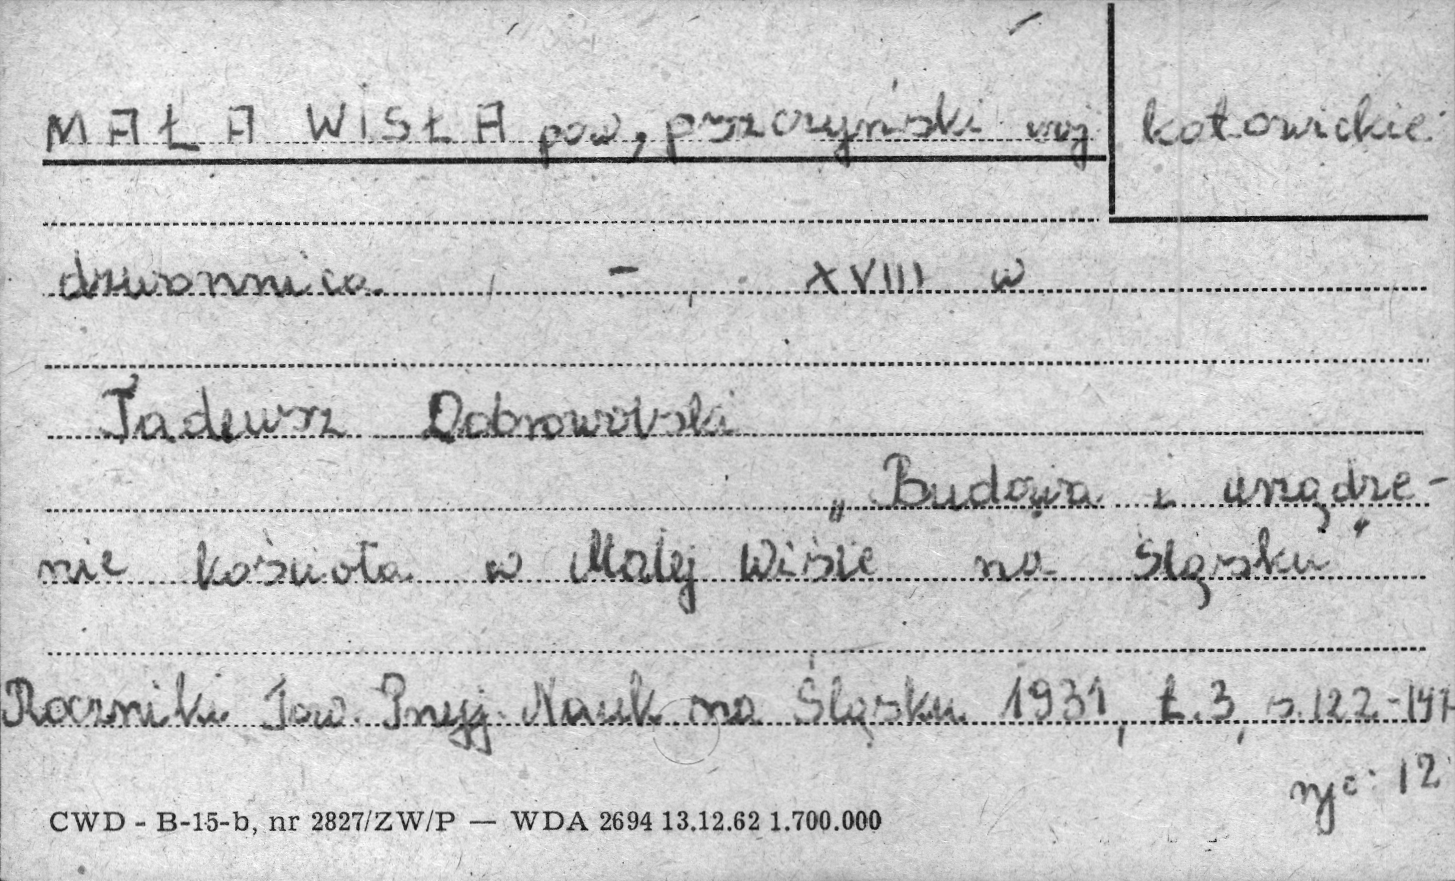 MAŁA WISŁA pow, pszczyński woj katowickie
dzwonnica - XVIII w
Tadeusz Dobrowolski
„Budowa i urządze-
nie kościoła w Małej Wiśle na Śląsku"
Roczniki Tow. Przyj. Nauk na Śląsku 1931, t.3, s.122-141
ryc: 12
CWD - B-15-b, nr 2827/ZW/P — WDA 2694 13.12.62 1.700.000